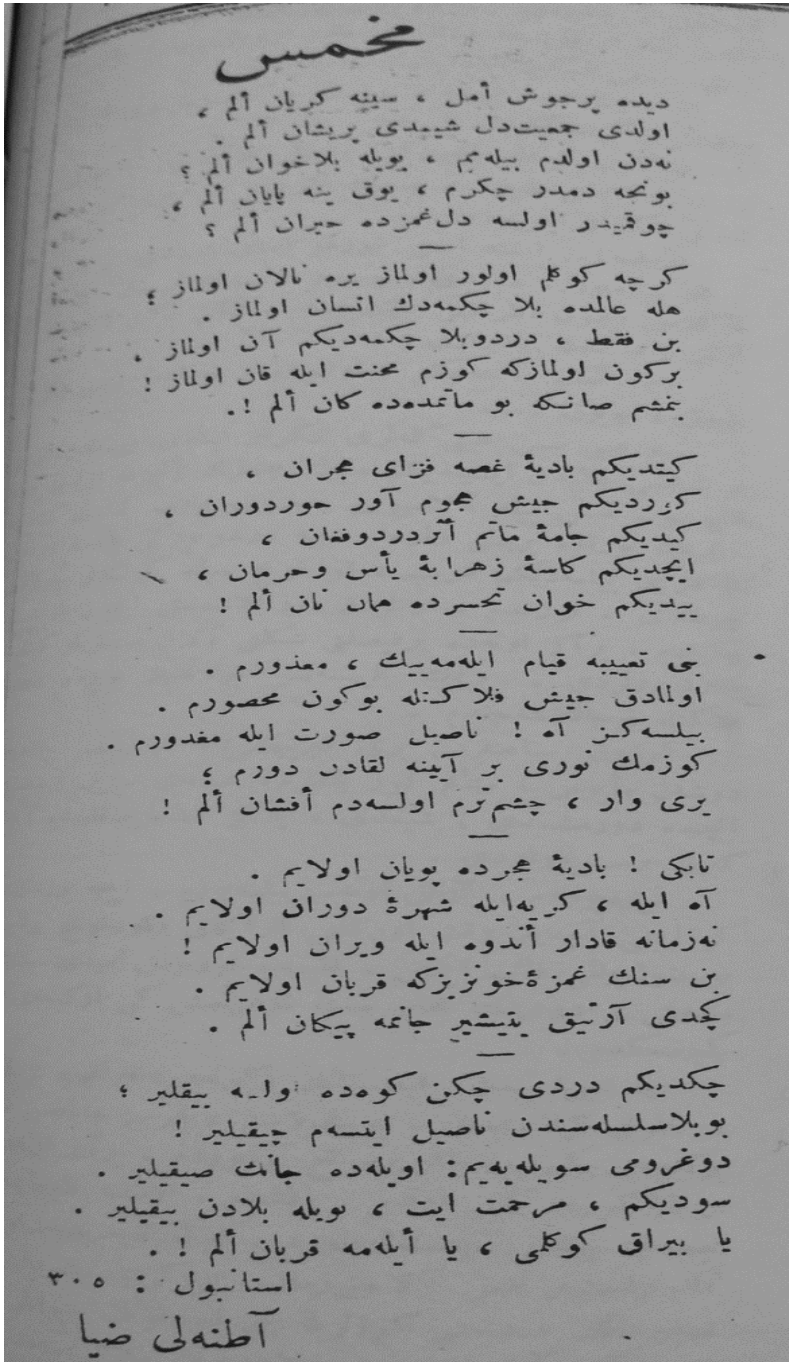 مخمس
دیده پرجوش أمل ، سینه کریان ألم ،
اولدی جمعیت‌دل شیمدی پریشان ألم .
نه‌دن اولدم بیله‌مم ، بویله بلاخوان ألم ؟
بونجه دمدر چکرم ، یوق ینه پایان ألم ،
چوقمیدر اولسه دل‌غمزده حیران ألم ؟
کرچه کوکلم اولور اولماز یره نالان اولماز ؛
هله عالمده بلا چکمه‌دك انسان اولماز .
بن فقط ، دردوبلا چکمه‌دیکم آن اولماز .
برکون اولمازکه کوزم محنت ایله قان اولماز !
بنمشم صانکه بو ماتمده‌ده کان ألم !.
کیتدیکم بادیهٔ غصه فزای هجران ،
کوردیکم جیش هجوم آور جوردوران ،
کیدیکم جامهٔ ماتم أثردردوفغان ،
ایچدیکم کاسهٔ زهرابهٔ یأس وحرمان ،
ییدیکم خوان تحسرده همان نان ألم !
بنی تعییبه قیام ایله‌مه‌ییك ، معذورم .
اولمادق جیش فلاکتله بوکون محصورم .
بیلسه‌کز آه ! ناصیل صورت ایله مغدورم .
کوزمك نوری بر آیینه لقادن دورم ؛
یری وار ، چشم‌ترم اولسه‌دم أفشان ألم !
تابکی ! بادیهٔ هجرده پویان اولایم .
آه ایله ، کریه‌ایله شهرهٔ دوران اولایم .
نه‌زمانه قادار أندوه ایله ویران اولایم !
بن سنك غمزهٔ‌خونریزکه قربان اولایم .
کچدی آرتیق یتیشیر جانمه پیکان ألم .
چکدیکم دردی چکن کوه‌ده اولسه ییقلیر ؛
بوبلاسلسله‌سندن ناصیل ایتسه‌م چیقیلیر !
دوغرومی سویله‌یه‌یم: اویله‌ده جانك صیقیلیر .
سودیکم ، مرحمت ایت ، بویله بلادن بیقیلیر .
یا بیراق کوکلمی ، یا أیله‌مه قربان ألم ! .
استانبول : ٣٠٥
آطنه‌لی ضیا